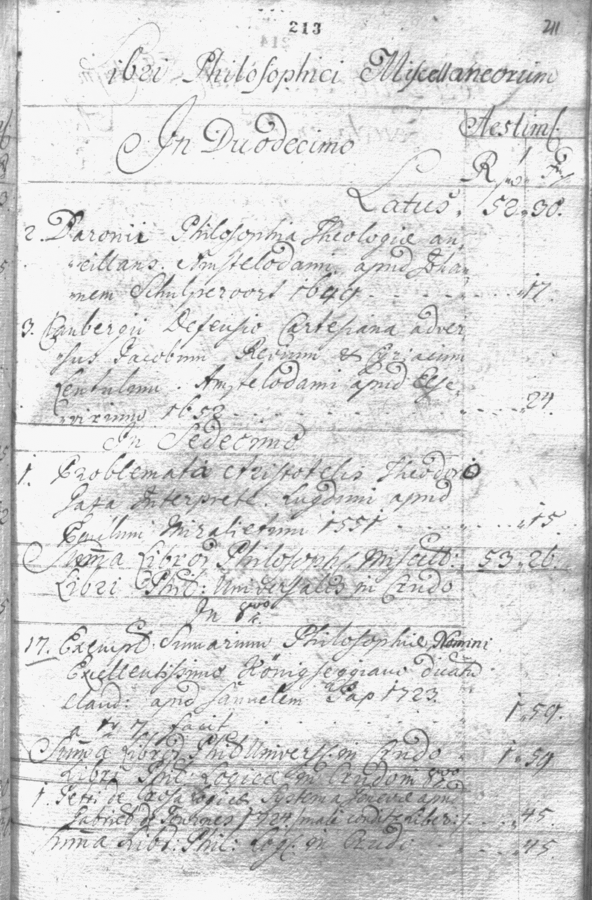 213
211
Libri Philosophici Miscellaneorum
Aestim
In Duodecimo
R
Latus. 52.30.
2. Baronii Philosophia Theologiae an,
cillans. Amstelodami, apud Joha
nem Schulperoort 1649 17.
3. Claubergii Defensio Cartesiana adver
sus Jacobum Revium & Cyriacum
Lentulum. Amstelodami apud Else,
virium 1652 24.
In Sedecimo
1. Problemata Aristotelis Theodoro
Gaza Interprete. Lugduni apud
Mirallietum 1551 15
Summa Libror Philosoph. Miscell: 53.26.
Libri Phil: Universales in Crudo
In 8vo
17. Exempl: Philosophiae Nomini
Excellentissimo Königseggiano dicata
Claud: apud Samuelem Pap 1723.
a xr 7 facit 1.59.
Summa Libror Phil Univers. in Crudo 1.59
Libri Phil: Logicae in Crudo 8vo
1. Petri de Logici Systema apud
Gabriel de 1724 45.
Summa Libr: Phil: Log. in Crudo 45.